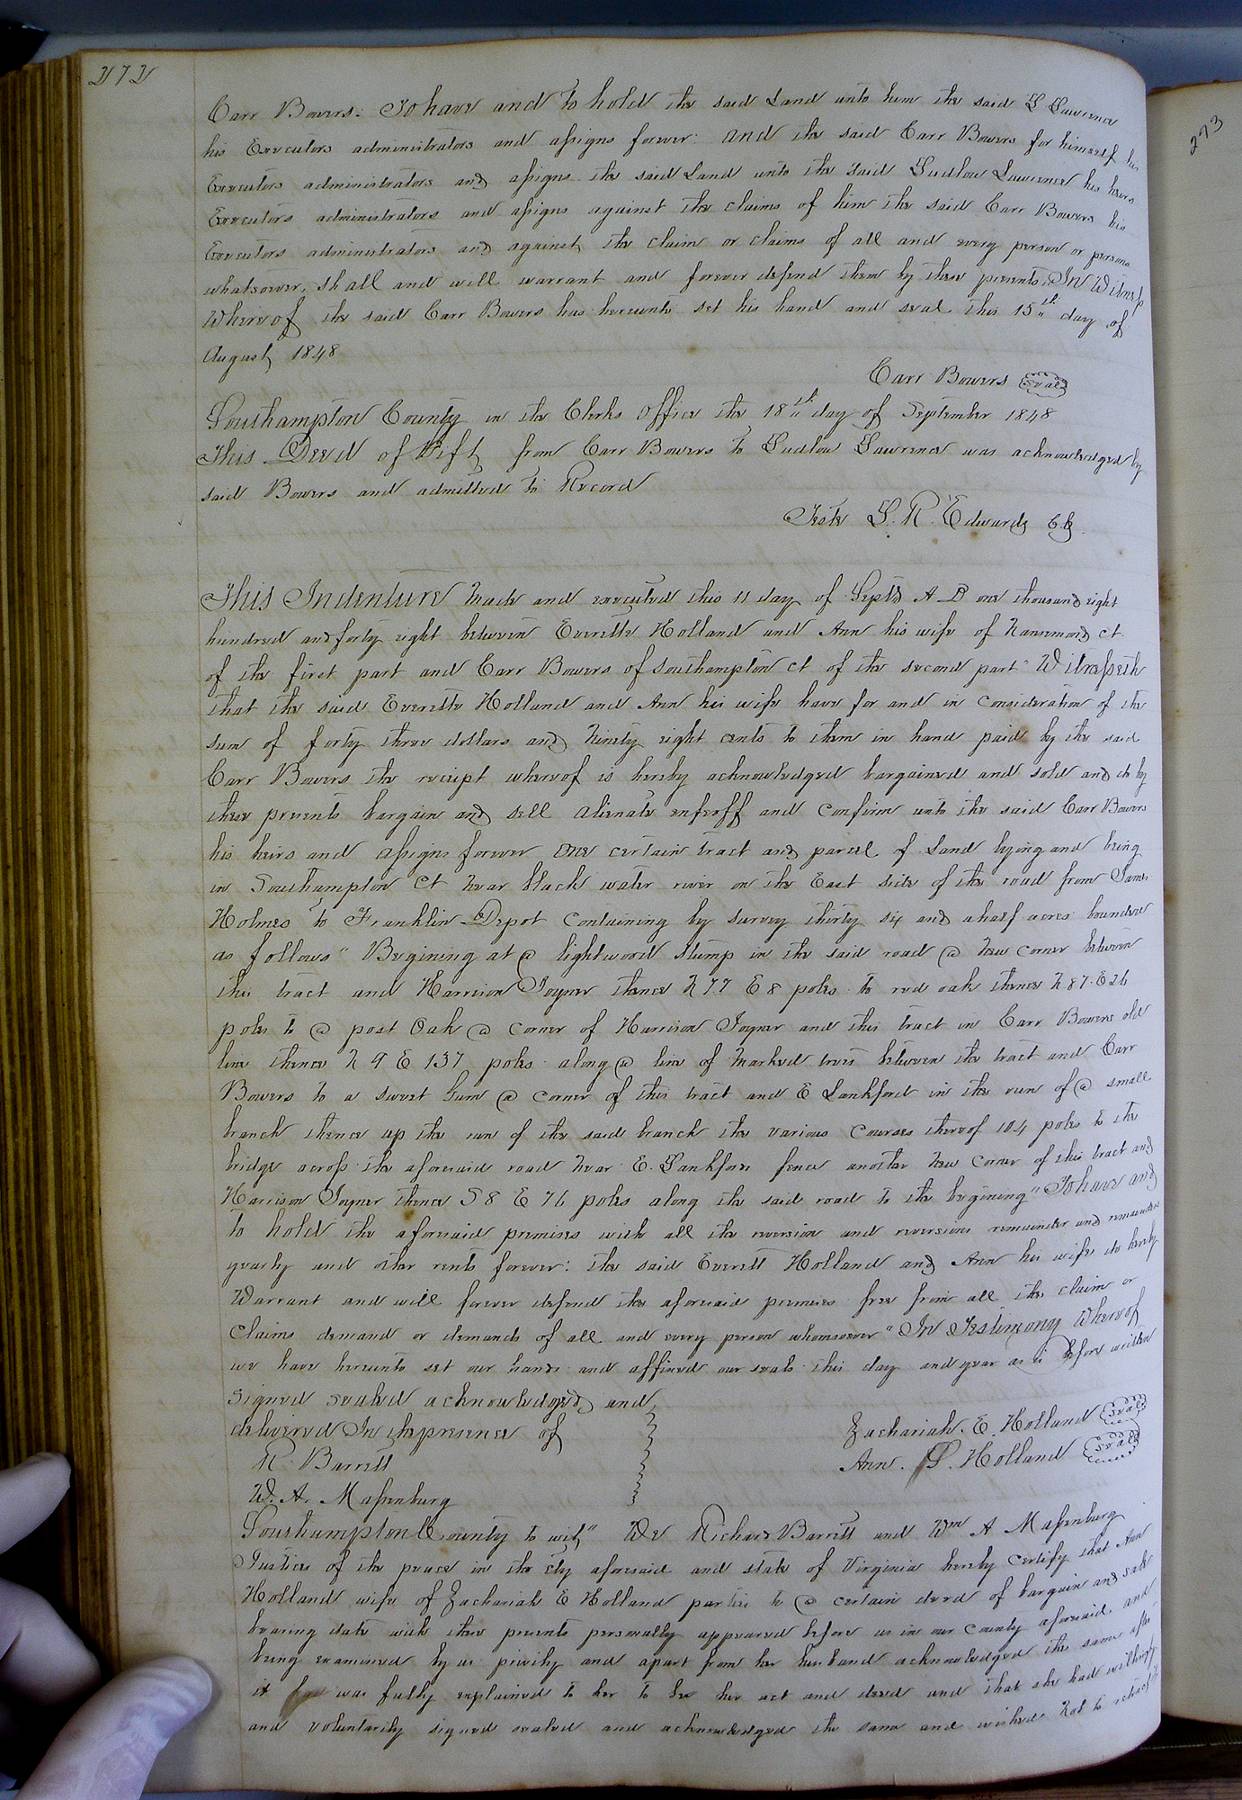 272
273
Carr Bowers. To have and to hold the said Land unto him the said L Lawrence
his Executors administrators and assigns forever: and the said Carr Bowers for himself his
Executors administrators and assigns the said Land unto the said Ludlow Lawrence his heirs
Executors administrators and assigns against the claims of him the said Carr Bowers his
Executors administrators and against the claim or claims of all and every person or persons
whatsoever, shall and will warrant and forever defend them by these presents. In Witness
Whereof the said Carr Bowers has hereunto set his hand and seal this 15th day of
August 1848
Carr Bowers Seal
Southampton County in the Clerks Office the 18th day of September 1848
This Deed of Gift from Carr Bowers to Ludlow Lawrence was acknowledged by
said Bowers and admitted to Record
Teste L. R. Edwards Ck
This Indenture made and executed this 11 day of Septr A D one thousand eight
hundred and forty eight between Everette Holland and Ann his wife of Nansemond Ct
of the first part and Carr Bowers of Southampton Ct of the second part" Witnesseth
that the said Everette Holland and Ann his wife have for and in consideration of the
sum of forty three dollars and Ninety eight cents to them in hand paid by the said
Carr Bowers the receipt whereof is hereby acknowledged bargained and sold and do by
these presents bargain and sell alienate enfeoff and confirm unto the said Carr Bowers
his heirs and assigns forever one certain tract and parcel of Land lying and being
in Southampton Ct near black water river on the East side of the road from
Holmes to Franklin Depot containing by survey thirty six and a half acres bounded
as follows" Begining at @ lightwood stump in the said road @ new corner between
this tract and Harrison Joyner thence N 77 E 8 poles to red oak thence N 87. E 26
poles to @ post Oak @ corner of Harrison Joyner and this tract in Carr Bowers old
line thence N 9 E 137 poles along @ line of marked trees between the tract and Carr
Bowers to a sweet Gum @ corner of this tract and E Lankford in the run of @ small
branch thence up the run of the said branch the various courses thereof 104 poles to the
bridge across the aforesaid road near E. Lankford fence another new corner of this tract and
Harrison Joyner thence S 8 E 76 poles along the said road to the begining" To have and
to hold the aforesaid premises with all the reversion and reversions remainder and remainders
yearly and other rents forever: the said Everett Holland and Ann his wife do hereby
Warrant and will forever defend the aforesaid premises free from all the claim or
claims demand or demands of all and every person whomsoever" In Testimony Whereof
we have hereunto set our hands and affixed our seals this day and year as is before written
Signed sealed acknowledged and
delivered In the presence of
R Barrett
W. A. Massenburg
Zachariah. E. Holland Seal
Ann. S. Holland Seal
Southampton County to wit" We Richard Barrett and Wm A Massenburg
Justices of the peace in the cty aforesaid and state of Virginia hereby certify that Ann
Holland wife of Zachariah E Holland parties to @ certain deed of bargain and sale
bearing date with these presents personally appeared before us in our County aforesaid and
being examined by us privily and apart from her husband acknowledged the same after
it was fully explained to her to be her act and deed and that she had willingly
and voluntarily signed sealed and acknowledged the same and wished not to retract